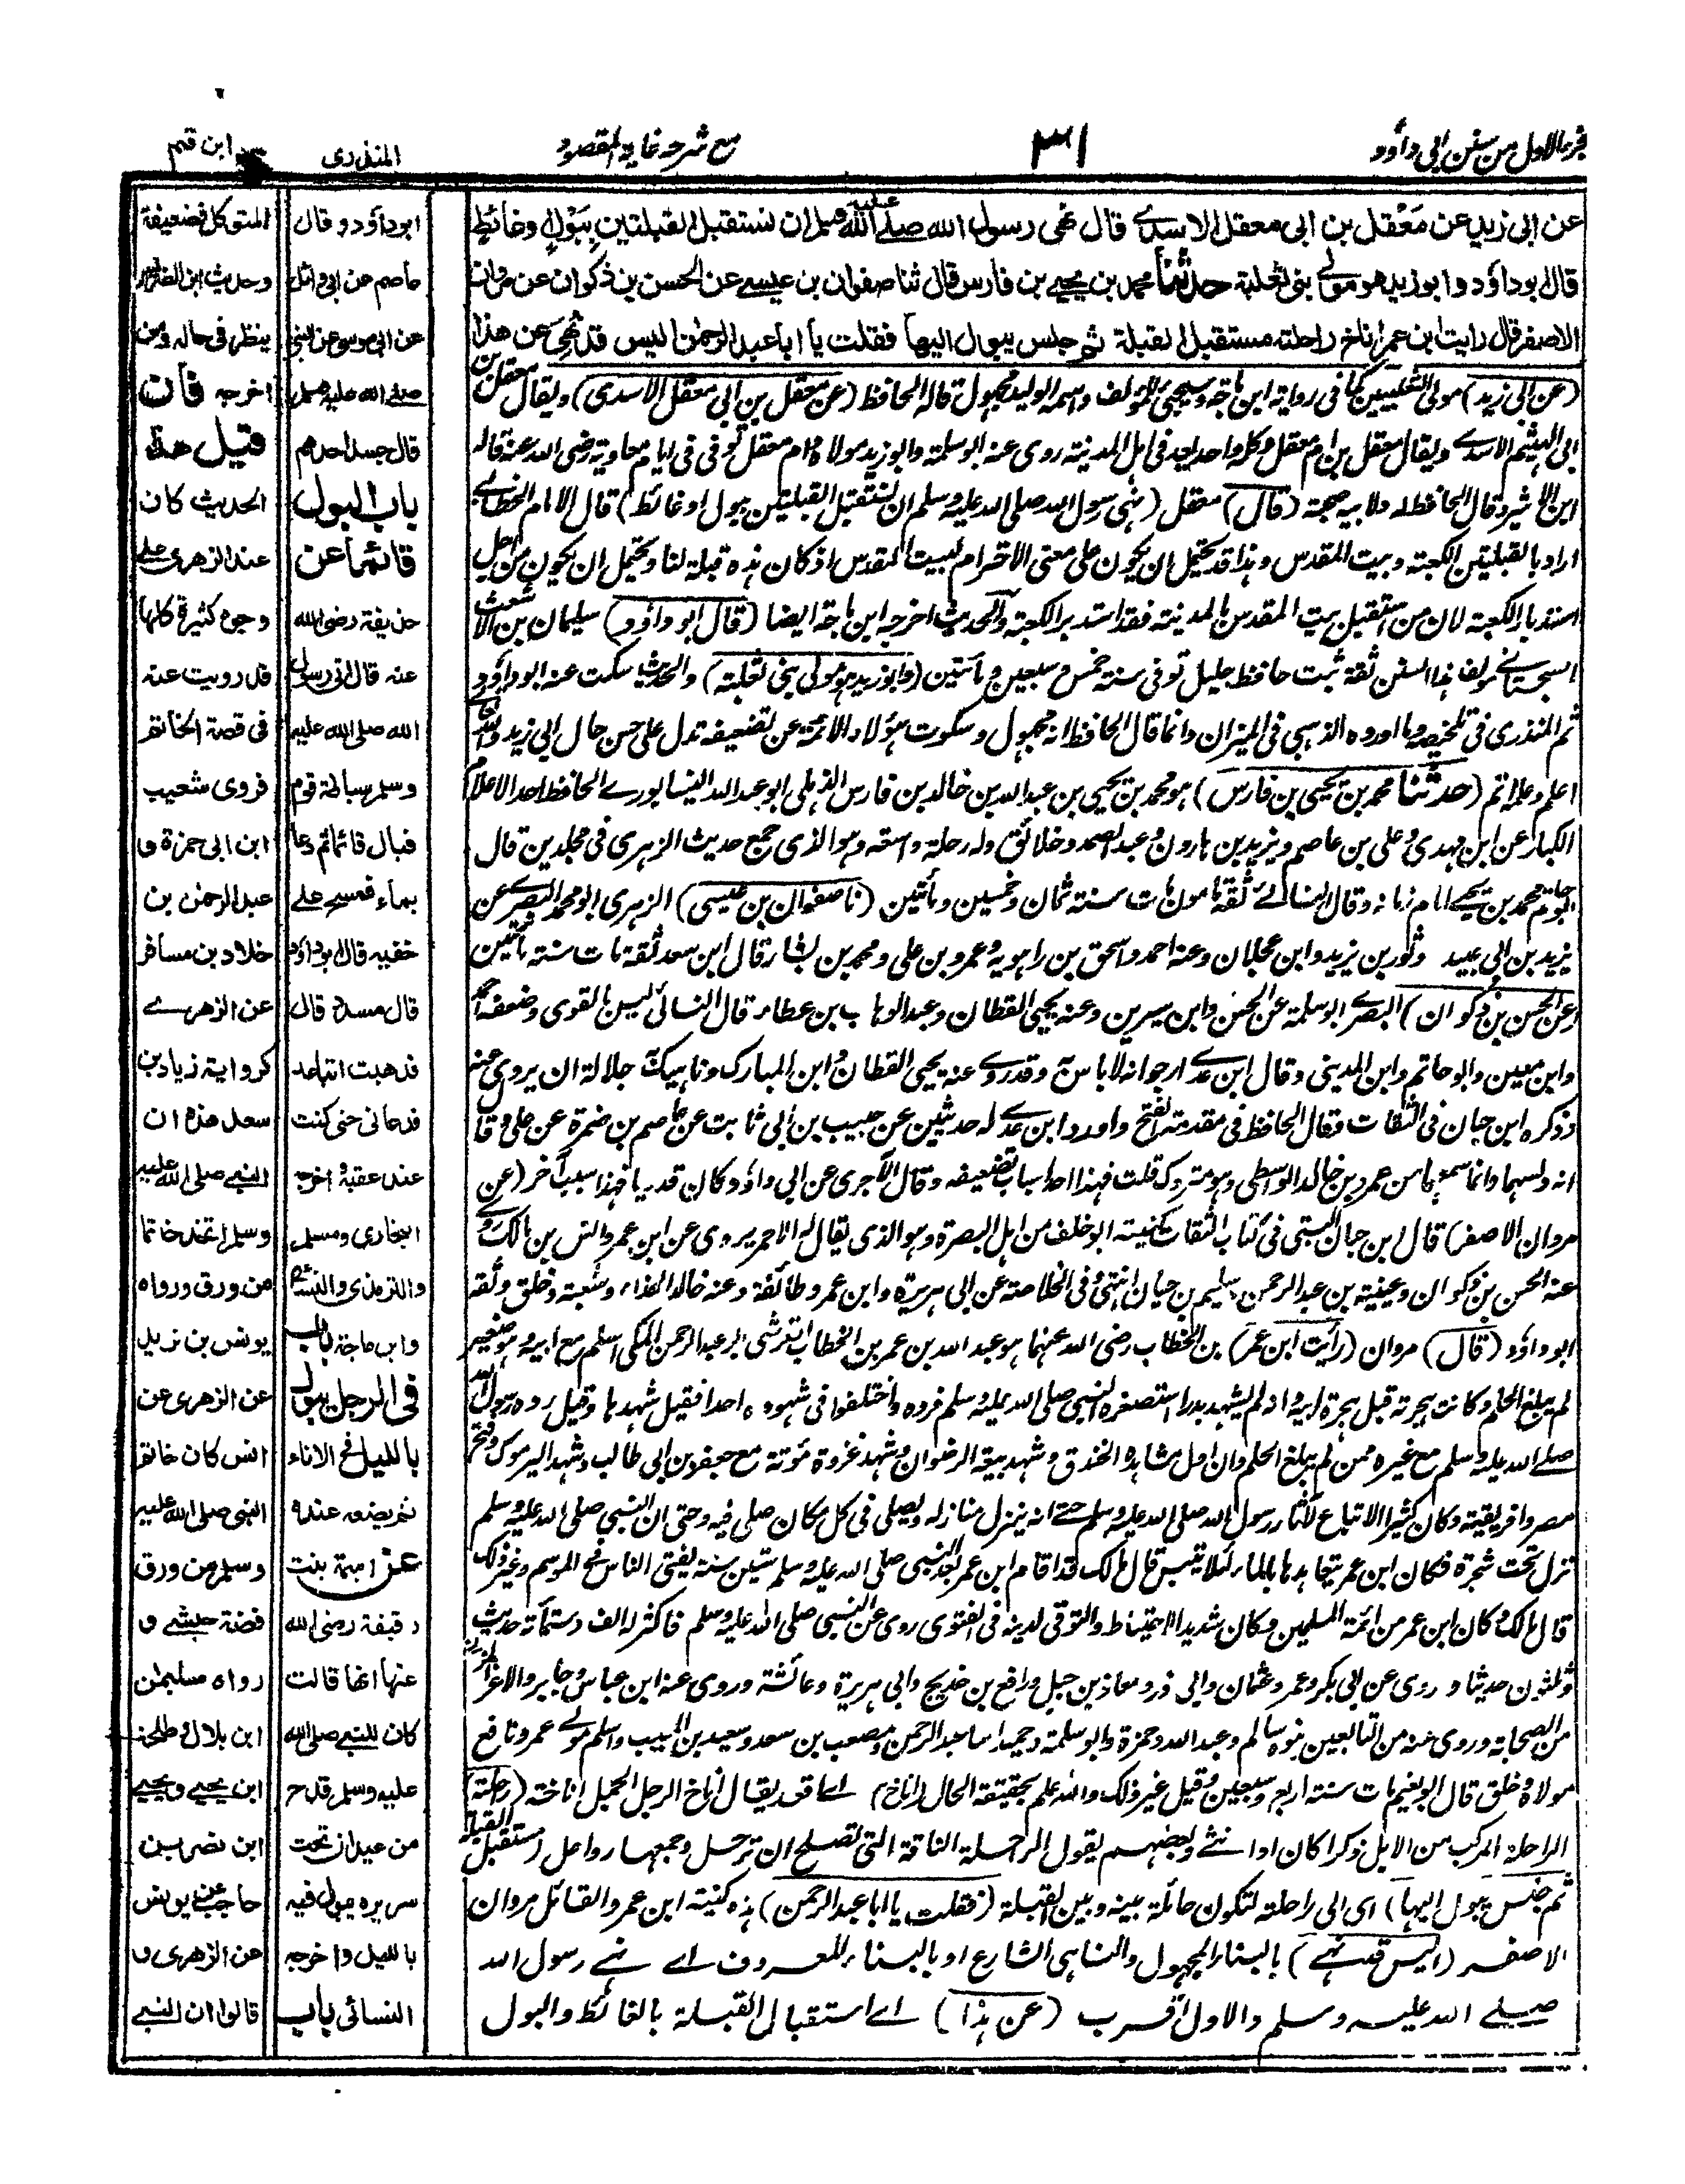 الجزء الاول من سنن ابی داؤد
٣١
مع شرحه غایة المقصود
المنذری
ابن قیم
عن ابی زید عن مَعْقل بن ابی معقل الاسدی قال نهی رسول الله صلے الله علیه وسلم ان نستقبل القبلتین ببَوْلٍ وغائطٍ
قال ابو داؤد وابو زید هو مولی بنی ثعلبة حدثنا محمد بن یحیے بن فارس قال ثنا صفوان بن عیسے عن الحسن بن ذکوان عن مروان
الاصفر قال رایت ابن عمر اناخ راحلته مستقبل القبلة ثم جلس یبول الیها فقلت یا ابا عبد الرحمٰن الیس قد نُهِیَ عن هذا
(عن ابی زید) مولی الثعلبیین کما فی روایة ابن ماجة وسیجئ للمؤلف واسمه الولید مجهول قاله الحافظ (عن معقل بن ابی معقل الاسدی) ویقال معقل بن
ابی الهیثم الاسدے ویقال معقل بن ام معقل وکله واحد یعد فی اهل المدینة روی عنه ابو سلمة وابو زید مولاه وام معقل توفی فی ایام معاویة رضی الله عنه قاله
ابن الاثیر وقال الحافظ له ولابیه صحبة (قال) معقل (نهی رسول الله صلی الله علیه وسلم ان نستقبل القبلتین ببول او غائط) قال الامام الخطابے
اراد بالقبلتین الکعبة وبیت المقدس وهذا قد یحتمل ان یکون علی معنی الاحترام لبیت المقدس اذ کان هذه قبلة لنا ویحتمل ان یکون من اجل
استدبار الکعبة لان من استقبل بیت المقدس بالمدینة فقد استدبر الکعبة والحدیث اخرجه ابن ماجة ایضا (قال ابو داؤد) سلیمان بن الاشعث
السجستانے مؤلف هذا السنن ثقة ثبت حافظ جلیل توفی سنة خمس وسبعین ومأتین (وابو زید هو مولی بنی ثعلبة) والحدیث سکت عنه ابو داؤد
ثم المنذری فی تلخیصه وما اورده الذهبی فی المیزان وانما قال الحافظ انه مجهول وسکوت هؤلاء الائمة عن تضعیفه تدل علی حسن حال ابی زید والله
اعلم وعلمه اتم (حدثنا محمد بن یحیی بن فارس) هو محمد بن یحیی بن عبد الله بن خالد بن فارس الذهلی ابو عبد الله النیسابورے الحافظ احد الاعلام
الکبار عن ابن مهدی وعلی بن عاصم ویزید بن هارون وعبد الصمد وخلائق وله رحلة واسعة وهو الذی جمع حدیث الزهری فی مجلدین قال
ابو حاتم محمد بن یحیے امام زمانه وقال النسائے ثقة مامون مات سنة ثمان وخمسین ومأتین (نا صفوان بن عیسی) الزهری ابو محمد البصرے عن
یزید بن ابی عبید وثور بن یزید وابن عجلان وعنه احمد واسحق بن راهویه وعمرو بن علی ومحمد بن بشار قال ابن سعد ثقة مات سنة مأتین
(عن الحسن بن ذکوان) البصرے ابو سلمة عن الحسن وابن سیرین وعنه یحیی القطان وعبد الوهاب بن عطاء قال النسائی لیس بالقوی وضعفه احمد
وابن معین وابو حاتم وابن المدینی وقال ابن عدے ارجو انه لا باس به وقد روے عنه یحیی القطان وابن المبارک وناهیک جلالة ان یروی عنه
وذکره ابن حبان فی الثقات وقال الحافظ فی مقدمة الفتح واورد ابن عدے له حدیثین عن حبیب بن ابی ثابت عن عاصم بن ضمرة عن علی وقال
انه دلسهما وانما سمعهما من عمرو بن خالد الواسطی وهو متروک قلت فهذا احد اسباب تضعیفه وقال الآجری عن ابی داؤد کان قدریا فهذا سبب آخر (عن
مروان الاصفر) قال ابن حبان البستی فی کتاب الثقات کنیته ابو خلف من اهل البصرة وهو الذی یقال له الاحمر یروی عن ابن عمر وانس بن مالک روے
عنه الحسن بن ذکوان وعیینة بن عبد الرحمن سلیم بن حیان انتهی وفی الخلاصة عن ابی هریرة وابن عمر وطائفة وعنه خالد الحذاء وشعبة وخلق وثقه
ابو داؤد (قال) مروان (رأیت ابن عمر) بن الخطاب رضی الله عنهما هو عبد الله بن عمر بن الخطاب القرشی ابو عبد الرحمن المکی اسلم مع ابیه وهو صغیر
لم یبلغ الحلم وکانت هجرته قبل هجرة ابیه وانه لم یشهد بدرا استصغره النبی صلی الله علیه وسلم فرده واختلفوا فی شهوده احدا فقیل شهدها وقیل رده رسول الله
صلے الله علیه وسلم مع غیره ممن لم یبلغ الحلم وان اول مشاهده الخندق وشهد بیعة الرضوان وشهد غزوة مؤتة مع جعفر بن ابی طالب وشهد الیرموک وفتح
مصر وافریقیة وکان کثیر الاتباع لآثار رسول الله صلی الله علیه وسلم حتے انه ینزل منازله ویصلی فی کل مکان صلی فیه وحتی ان النبی صلی الله علیه وسلم
نزل تحت شجرة فکان ابن عمر یتعاهدها بالماء لئلا تیبس قال مالک قد اقام ابن عمر بعد النبی صلی الله علیه وسلم ستین سنة یفتی الناس فی الموسم وغیر ذلک
قال مالک وکان ابن عمر من ائمة المسلمین وکان شدید الاحتیاط والتوقی لدینه فی الفتوی روی عن النبی صلی الله علیه وسلم فاکثر له الف وستمأة حدیث
وثلثون حدیثا و روی عن ابی بکر وعمر وعثمان وابی ذر ومعاذ بن جبل ورافع بن خدیج وابی هریرة وعائشة وروی عنه ابن عباس وجابر والاغر المزنی
من الصحابة وروی عنه من التابعین بنوه سالم وعبد الله وحمزة وابو سلمة وحمید ابنا عبد الرحمن ومصعب بن سعد وسعید بن المسیب واسلم مولے عمر ونافع
مولاه وخلق قال ابو نعیم مات سنة اربع وسبعین وقیل غیر ذلک والله اعلم بحقیقة الحال (اناخ) اے اقعد یقال اناخ الرجل الجمل اناخة (راحلته)
الراحلة المرکب من الابل ذکرا کان او انثے وبعضهم یقول الراحلة الناقة التی تصلح ان ترحل وجمعها رواحل (مستقبل القبلة
ثم جلس یبول الیها) ای الی راحلته لتکون حائلة بینه وبین القبلة (فقلت یا ابا عبد الرحمن) هذه کنیة ابن عمر والقائل مروان
الاصفر (الیس قد نهے) بالبناء للمجهول والناهی الشارع او بالبناء للمعروف اے نهے رسول الله
صلے الله علیه وسلم والاول اقرب (عن هذا) اے استقبال القبلة بالغائط والبول
ابو داؤد وقال
عاصم عن ابی وائل
عن ابی موسی عن النبی
صلے الله علیه وسلم
قال جسد احدهم
باب البول
قائما عن
حذیفة رضی الله
عنه قال اتی رسول
الله صلی الله علیه
وسلم سباطة قوم
فبال قائما ثم دعا
بماء فمسح علے
خفیه قال ابو داؤد
قال مسدد قال
فذهبت اتباعد
فدعانی حتی کنت
عند عقبه واخرجه
البخاری ومسلم
والترمذی والنسائی
وابن ماجة باب
فی الرجل یبول
باللیل فی الاناء
ثم یضعه عنده
عن امیمة بنت
رقیقة رضی الله
عنها انها قالت
کان للنبے صلی الله
علیه وسلم قدح
من عیدان تحت
سریره یبول فیه
باللیل واخرجه
النسائی باب
المتوکل ضعیفة
وحدیث ابن الضریس
ینظر فی حاله ومن
اخرجه فان
قیل هذا
الحدیث کان
عند الزهری علے
وجوه کثیرة کلها
قد رویت عنه
فی قصة الخاتم
فروی شعیب
ابن ابی حمزة و
عبد الرحمٰن بن
خالد بن مسافر
عن الزهرے
کروایة زیاد بن
سعد هذه ان
النبے صلی الله علیه
وسلم اتخذ خاتما
من ورق ورواه
یونس بن یزید
عن الزهری عن
انس کان خاتم
النبی صلی الله علیه
وسلم من ورق
فضة حبشے و
رواه سلیمٰن
ابن بلال وطلحة
ابن یحیے ویحیے
ابن نصر بن
حاجب عن یونس
عن الزهری و
قالوا ان النبے